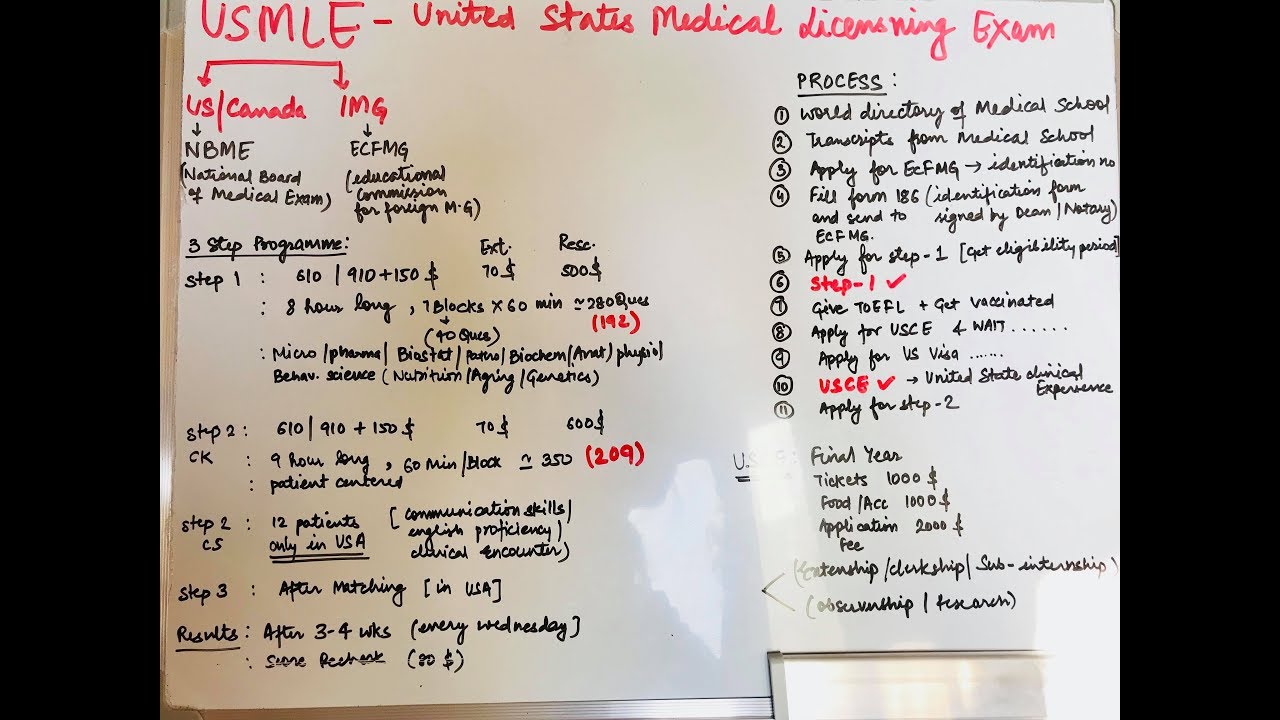 USMLE - United States Medical Licensning Exam
US/Canada IMG
NBME ECFMG
(National Board of Medical Exam)
(educational commission for foreign M.G)
3 Step Programme: Ext. Resc.
Step 1 : 610 | 910+150 $ 70 $ 500 $
: 8 hour long, 7 Blocks x 60 min ≃ 280 Ques
(40 Ques) (192)
: Micro/pharma/Biostat/Patho/Biochem/Anat/physio/
Behav. science (Nutrition/Aging/Genetics)
Step 2 : 610 | 910 + 150 $ 70 $ 600 $
CK : 9 hour long, 60 Min/Block ≃ 350 (209)
: patient centered
Step 2 : 12 patients [communication skills/
CS only in USA english proficiency/
clinical encounter)
Step 3 : After Matching [in USA]
Results : After 3-4 wks (every wednesday]
: Score Recheck (80 $)
PROCESS :
① World directory of Medical School
② Transcripts from Medical School
③ Apply for ECFMG → identification no
④ Fill form 186 (identification form
and send to signed by Dean/Notary)
ECFMG.
⑤ Apply for step-1 [Get eligibility period]
⑥ Step-1 ✓
⑦ Give TOEFL + Get vaccinated
⑧ Apply for USCE & WAIT ......
⑨ Apply for US Visa ......
⑩ USCE ✓ → United State clinical
Experience
⑪ Apply for step-2
: Final Year
Tickets 1000 $
Food/Acc 1000 $
Application 2000 $
fee
(Extenship/clerkship/Sub-internship)
(observership/research)